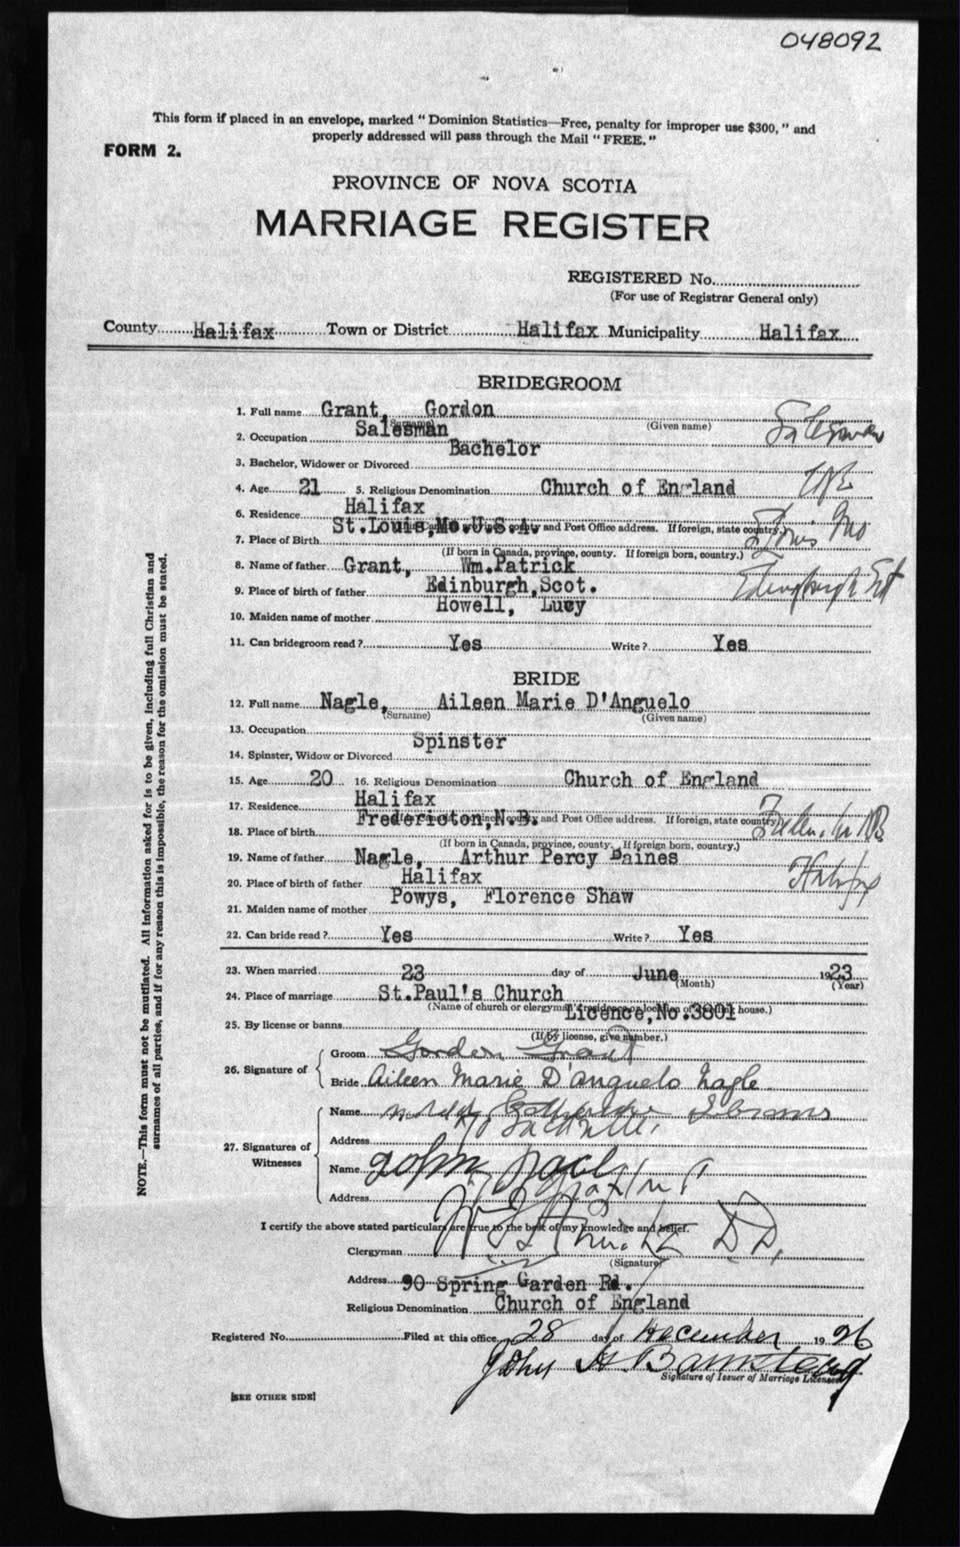 048092
This form if placed in an envelope, marked "Dominion Statistics—Free, penalty for improper use $300," and
properly addressed will pass through the Mail "FREE."
FORM 2.
PROVINCE OF NOVA SCOTIA
MARRIAGE REGISTER
REGISTERED No.
(For use of Registrar General only)
County Halifax Town or District Halifax Municipality Halifax
BRIDEGROOM
1. Full name Grant, Gordon
(Surname) (Given name)
2. Occupation Salesman Salesman
3. Bachelor, Widower or Divorced Bachelor
4. Age 21 5. Religious Denomination Church of England
6. Residence Halifax
and Post Office address. If foreign, state country.)
7. Place of Birth St.Louis,Mo.U.S.A.
(If born in Canada, province, county. If foreign born, country.)
8. Name of father Grant, Wm.Patrick
9. Place of birth of father Edinburgh,Scot.
10. Maiden name of mother Howell, Lucy
11. Can bridegroom read? Yes Write? Yes
BRIDE
12. Full name Nagle, Aileen Marie D'Anguelo
(Surname) (Given name)
13. Occupation
14. Spinster, Widow or Divorced Spinster
15. Age 20 16. Religious Denomination Church of England
17. Residence Halifax
and Post Office address. If foreign, state country.)
18. Place of birth Fredericton,N.B.
(If born in Canada, province, county. If foreign born, country.)
19. Name of father Nagle, Arthur Percy Baines
20. Place of birth of father Halifax Halifax
21. Maiden name of mother Powys, Florence Shaw
22. Can bride read? Yes Write? Yes
23. When married 23 day of June 1923
(Month) (Year)
24. Place of marriage St.Paul's Church
(Name of church or clergyman's residence or location of house.)
25. By license or banns Licence,No.3801
(If by license, give number.)
26. Signature of
Groom Gordon Grant
Bride Aileen Marie D'Anguelo Nagle
27. Signatures of Witnesses
Name
Address
Name John
Address
I certify the above stated particulars are true to the best of my knowledge and belief.
Clergyman D.D.
(Signature)
Address 90 Spring Garden Rd.
Religious Denomination Church of England
Registered No. Filed at this office 28 day of December 1926
John H Barnstead
Signature of Issuer of Marriage Licenses
[SEE OTHER SIDE]
NOTE.—This form must not be mutilated. All information asked for is to be given, including full Christian and
surnames of all parties, and if for any reason this is impossible, the reason for the omission must be stated.